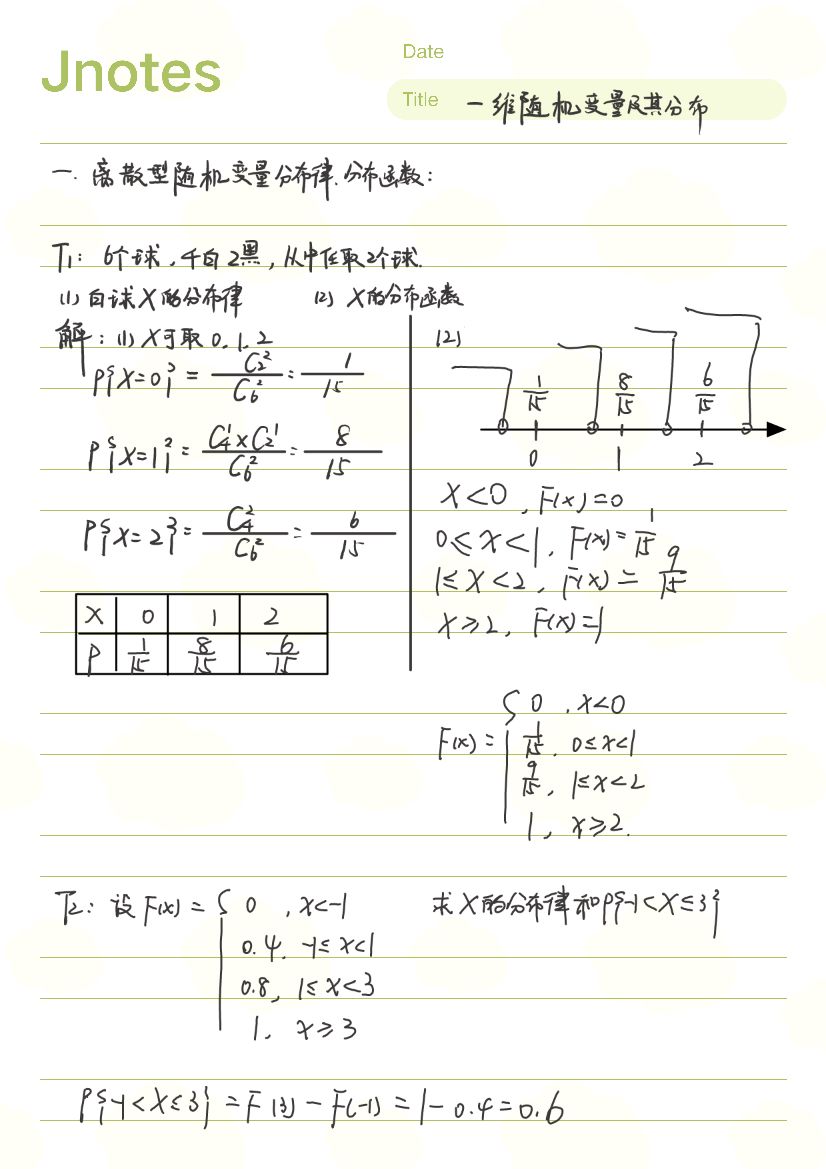 Jnotes
Date
Title 一维随机变量及其分布
一. 离散型随机变量分布律、分布函数:
T1: 6个球, 4白2黑, 从中任取2个球.
(1) 白球X的分布律 (2) X的分布函数
解: (1) X可取 0, 1, 2
P{X=0} = C₂²/C₆² = 1/15
P{X=1} = C₄¹×C₂¹/C₆² = 8/15
P{X=2} = C₄²/C₆² = 6/15
X 0 1 2
P 1/15 8/15 6/15
(2)
1/15 8/15 6/15
0 1 2
X<0, F(x)=0
0≤X<1, F(x)=1/15
1≤X<2, F(x)=9/15
X≥2, F(x)=1
F(x) = { 0, x<0
1/15, 0≤x<1
9/15, 1≤x<2
1, x≥2.
T2: 设F(x) = { 0, x<-1 求X的分布律和P{-1<X≤3}
0.4, -1≤x<1
0.8, 1≤x<3
1, x≥3
P{-1<X≤3} = F(3) - F(-1) = 1-0.4=0.6